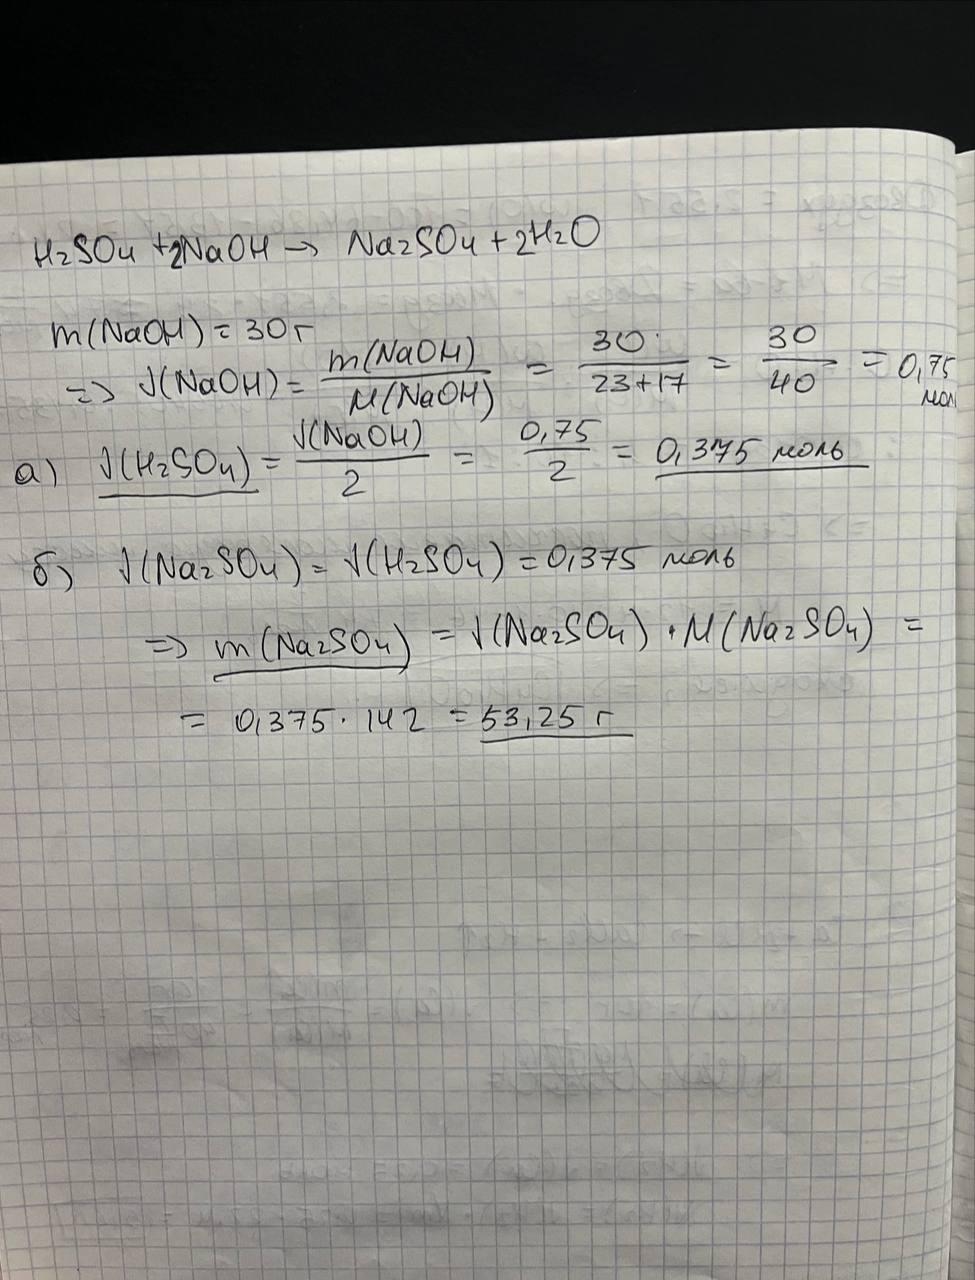 H₂SO₄ + 2NaOH → Na₂SO₄ + 2H₂O
m(NaOH) = 30 г
=> √(NaOH) = m(NaOH) / M(NaOH) = 30 / 23+17 = 30 / 40 = 0,75 моль
а) √(H₂SO₄) = √(NaOH) / 2 = 0,75 / 2 = 0,375 моль
б) √(Na₂SO₄) = √(H₂SO₄) = 0,375 моль
=> m(Na₂SO₄) = √(Na₂SO₄) · M(Na₂SO₄) =
= 0,375 · 142 = 53,25 г